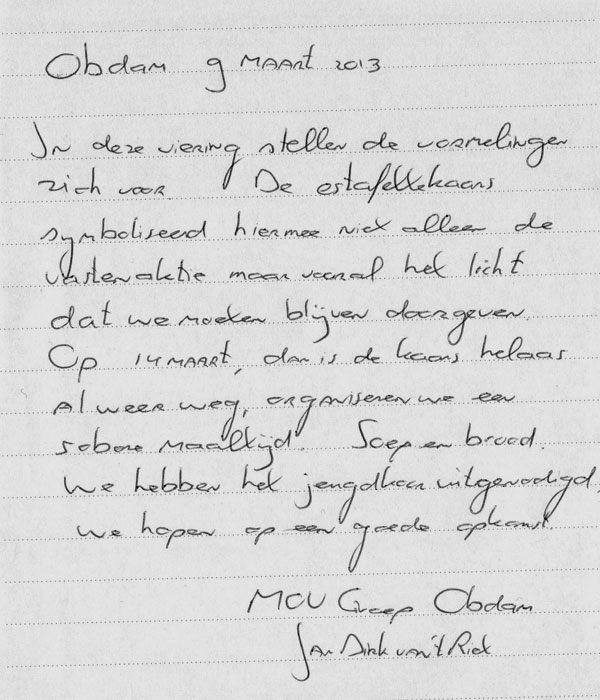 Obdam 9 MAART 2013
In deze viering stellen de vormelingen
zich voor. De estafettekaars
symboliseerd hiermee niet alleen de
vastenaktie maar vooral het licht
dat we moeten blijven doorgeven.
Op 14 MAART, dan is de kaars helaas
al weer weg, organiseren we een
sobere maaltijd. Soep en brood.
We hebben het jeugdkoor uitgenodigd,
we hopen op een goede opkomst.
MOV Groep Obdam
Jan Dirk van 't Riet